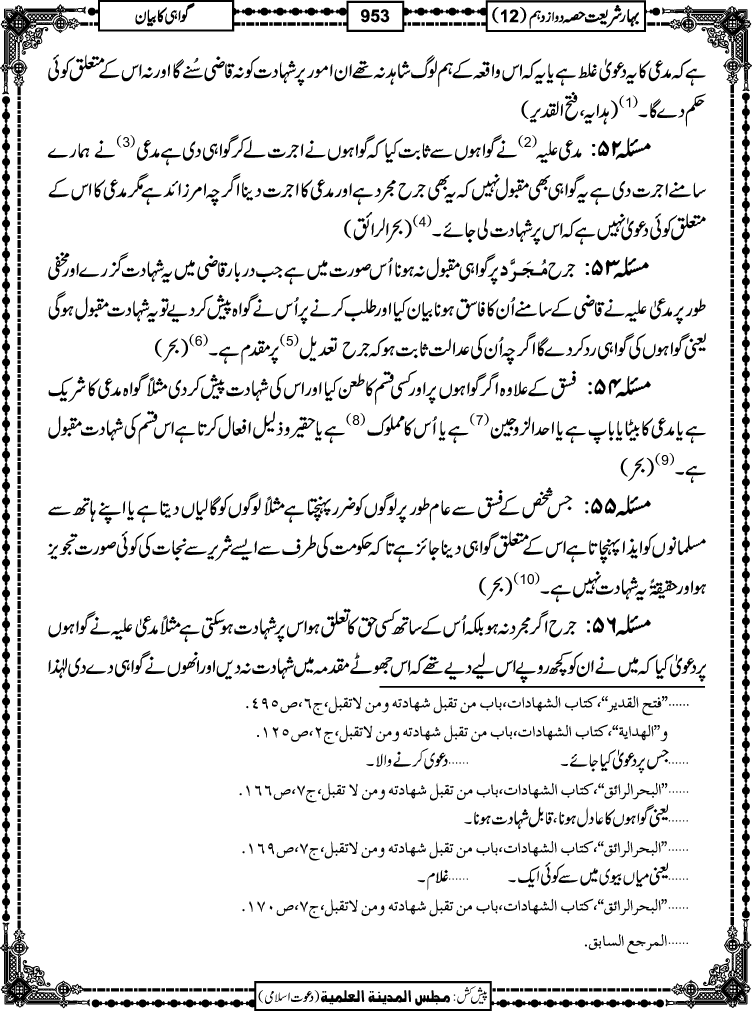 بہار شریعت حصہ دوازدہم (12)
953
گواہی کا بیان
ہے کہ مدعی کا یہ دعویٰ غلط ہے یا یہ کہ اس واقعہ کے ہم لوگ شاہد نہ تھے ان امور پر شہادت کو نہ قاضی سُنے گا اور نہ اس کے متعلق کوئی
حکم دے گا۔(1) (ہدایہ، فتح القدیر)
مسئلہ ۵۲: مدعیٰ علیہ(2) نے گواہوں سے ثابت کیا کہ گواہوں نے اجرت لے کر گواہی دی ہے مدعی(3) نے ہمارے
سامنے اجرت دی ہے یہ گواہی بھی مقبول نہیں کہ یہ بھی جرح مجرد ہے اور مدعی کا اجرت دینا اگرچہ امر زائد ہے مگر مدعی کا اس کے
متعلق کوئی دعویٰ نہیں ہے کہ اس پر شہادت لی جائے۔(4) (بحرالرائق)
مسئلہ ۵۳: جرح مُجَرَّد پر گواہی مقبول نہ ہونا اُس صورت میں ہے جب دربار قاضی میں یہ شہادت گزرے اور مخفی
طور پر مدعیٰ علیہ نے قاضی کے سامنے اُن کا فاسق ہونا بیان کیا اور طلب کرنے پر اُس نے گواہ پیش کر دیے تو یہ شہادت مقبول ہوگی
یعنی گواہوں کی گواہی رد کردے گا اگرچہ اُن کی عدالت ثابت ہو کہ جرح تعدیل(5) پر مقدم ہے۔(6) (بحر)
مسئلہ ۵۴: فسق کے علاوہ اگر گواہوں پر اور کسی قسم کا طعن کیا اور اس کی شہادت پیش کردی مثلاً گواہ مدعی کا شریک
ہے یا مدعی کا بیٹا یا باپ ہے یا احد الزوجین(7) ہے یا اُس کا مملوک(8) ہے یا حقیر و ذلیل افعال کرتا ہے اس قسم کی شہادت مقبول
ہے۔(9) (بحر)
مسئلہ ۵۵: جس شخص کے فسق سے عام طور پر لوگوں کو ضرر پہنچتا ہے مثلاً لوگوں کو گالیاں دیتا ہے یا اپنے ہاتھ سے
مسلمانوں کو ایذا پہنچاتا ہے اس کے متعلق گواہی دینا جائز ہے تاکہ حکومت کی طرف سے ایسے شریر سے نجات کی کوئی صورت تجویز
ہو اور حقیقۃً یہ شہادت نہیں ہے۔(10) (بحر)
مسئلہ ۵۶: جرح اگر مجرد نہ ہو بلکہ اُس کے ساتھ کسی حق کا تعلق ہو اس پر شہادت ہو سکتی ہے مثلاً مدعیٰ علیہ نے گواہوں
پر دعویٰ کیا کہ میں نے ان کو کچھ روپے اس لیے دیے تھے کہ اس جھوٹے مقدمہ میں شہادت نہ دیں اور انھوں نے گواہی دے دی لہٰذا
......"فتح القدیر"، کتاب الشهادات، باب من تقبل شهادته ومن لاتقبل، ج٦، ص٤٩٥.
و"الهداية"، کتاب الشهادات، باب من تقبل شهادته ومن لاتقبل، ج٢، ص١٢٥.
......جس پر دعویٰ کیا جائے۔ ......دعوی کرنے والا۔
......"البحرالرائق"، کتاب الشهادات، باب من تقبل شهادته ومن لا تقبل، ج٧، ص١٦٦.
......یعنی گواہوں کا عادل ہونا، قابل شہادت ہونا۔
......"البحرالرائق"، کتاب الشهادات، باب من تقبل شهادته ومن لاتقبل، ج٧، ص١٦٩.
......یعنی میاں بیوی میں سے کوئی ایک۔ ......غلام۔
......"البحرالرائق"، کتاب الشهادات، باب من تقبل شهادته ومن لاتقبل، ج٧، ص١٧٠.
......المرجع السابق.
پیش کش: مجلس المدينة العلمية (دعوت اسلامی)